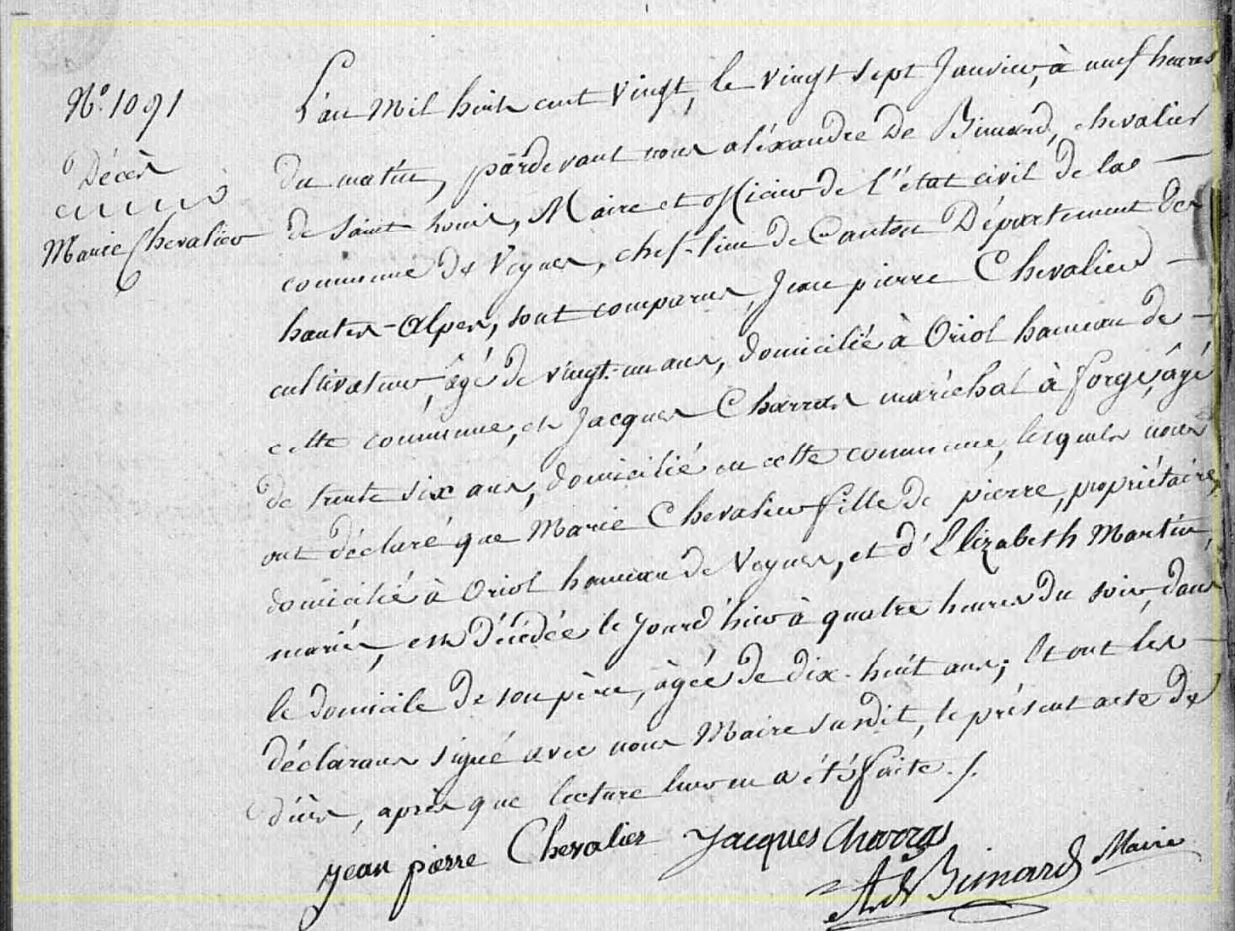 N.º 1091
Décès
Marie Chevalier
L'an Mil huit cent vingt, le vingt sept Janvier, à neuf heures
du matin, pardevant nous aléxandre De Bimard, chevalier
de Saint louis, Maire et officier de l'état civil de la
commune de Veynes, chef-lieu de Canton Département des
hautes-Alpes, sont comparus, Jean pierre Chevalier
cultivateur, âgé de vingt-un ans, domicilié à Oriol hameau de
cette commune, et Jacques Charras maréchal à forge, âgé
de trente six ans, domicilié en cette commune, lesquels nous
ont déclaré que Marie Chevalier fille de pierre, propriétaire,
domicilié à Oriol hameau de Veynes, et d'Elizabeth Martin,
mariés, est décédée le jourd'hier à quatre heures du soir, dans
le domicile de son père, âgée de dix-huit ans; Et ont les
déclarans signé avec nous Maire susdit, le présent acte de
décès, après que lecture leur en a été faite ./.
jean pierre Chevalier Jacques Charras
A. de Bimard Maire